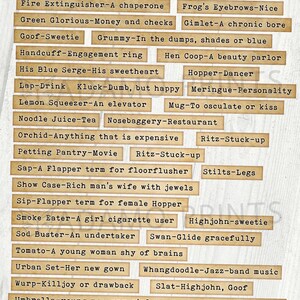 Fire Extinguisher-A chaperone
Frog's Eyebrows-Nice
Green Glorious-Money and checks
Gimlet-A chronic bore
Goof-Sweetie
Grummy-In the dumps, shades or blue
Handcuff-Engagement ring
Hen Coop-A beauty parlor
His Blue Serge-His sweetheart
Hopper-Dancer
Lap-Drink
Kluck-Dumb, but happy
Meringue-Personality
Lemon Squeezer-An elevator
Mug-To osculate or kiss
Noodle Juice-Tea
Nosebaggery-Restaurant
Orchid-Anything that is expensive
Ritz-Stuck-up
Petting Pantry-Movie
Ritz-Stuck-up
Sap-A Flapper term for floorflusher
Stilts-Legs
Show Case-Rich man's wife with jewels
Sip-Flapper term for female Hopper
Smoke Eater-A girl cigarette user
Highjohn-sweetie
Sod Buster-An undertaker
Swan-Glide gracefully
Tomato-A young woman shy of brains
Urban Set-Her new gown
Whangdoodle-Jazz-band music
Wurp-Killjoy or drawback
Slat-Highjohn, Goof